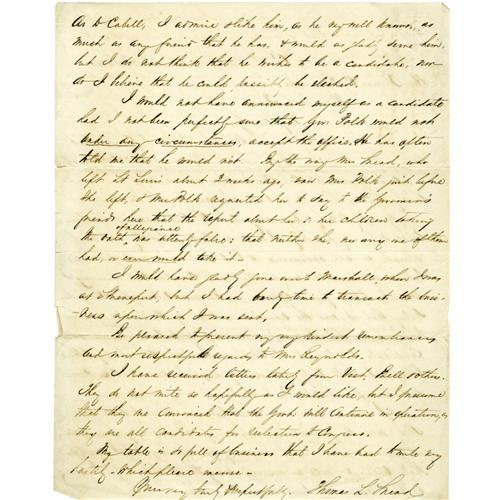 As to Cabell, I admire & like him, as he may well know, as
much as any friend that he has, & would as gladly serve him.
but I do not think that he wishes to be a candidate, nor
do I believe that he could possibly be elected.
I would not have announced myself as a candidate
had I not been perfectly sure that Gov. Polk would not
under any circumstances, accept the office. He has often
told me that he would not. By the way Mrs Snead, who
left St Louis about 2 weeks ago, saw Mrs Polk just before
she left, & Mrs Polk requested her to say to the Governor's
friends here that the report about her & her children taking
the oath of allegiance was utterly false: that neither she, nor any one of them
had, or ever would take it.
I would have gladly gone onto Marshall, when I was
at Shreveport, but I had barely time to transact the busi-
ness upon which I was sent.
Be pleased to present my very kindest remembrances
and most respectful regards to Mrs Reynolds.
I have received letters lately from Vest, Bell & others.
They do not write as hopefully as I would like, but I presume
that they are convinced that the Govt. will continue in operation, as
they are all candidates for reelection to Congress.
My table is so full of business that I have had to write very
hastily - which please excuse -
Yours very truly & respectfully, Thomas L. Snead